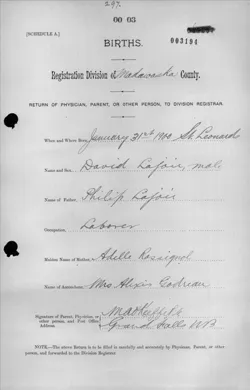 297
00 03
[SCHEDULE A.]
003194
BIRTHS.
Registration Division of Madawaska County.
RETURN OF PHYSICIAN, PARENT, OR OTHER PERSON, TO DIVISION REGISTRAR.
When and Where Born, January 31st St. Leonards
Name and Sex, David Lajoie, male
Name of Father, Philip Lajoie
Occupation, Laborer
Maiden Name of Mother, Adelle Rossignol
Name of Accoucheur, Mrs Alexis Codreau
Signature of Parent, Physician, or
other person, and Post Office
Address.
Grand Falls NB
NOTE.—The above Return is to be filled in carefully and accurately by Physician, Parent, or other person,
and forwarded to the Division Registrar